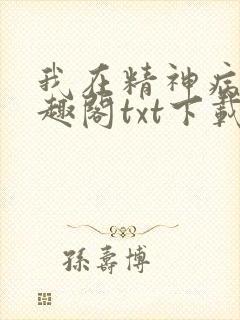 我在精神病
趣阁txt下载
孫壽博